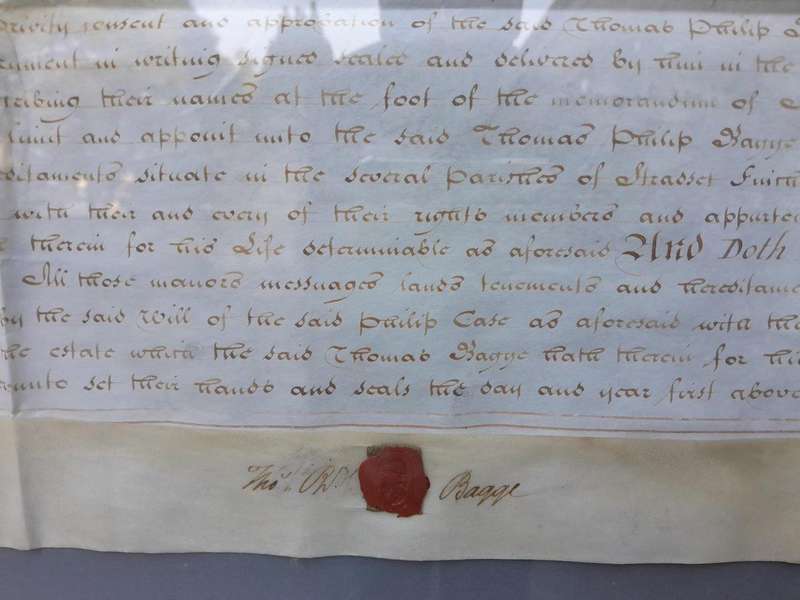 privity consent and approbation of the said Thomas Philip
in writing signed sealed and delivered by him in the
their names at the foot of the memorandum of
and appoint unto the said Thomas Philip Bagge
situate in the several Parishes of Stradset
with their and every of their rights members and
therein for his Life determinable as aforesaid And Doth
All those manors messuages lands tenements and
by the said Will of the said Philip Case as aforesaid with the
the estate which the said Thomas Bagge hath therein for his
set their hands and seals the day and year first above
Tho.s Bagge